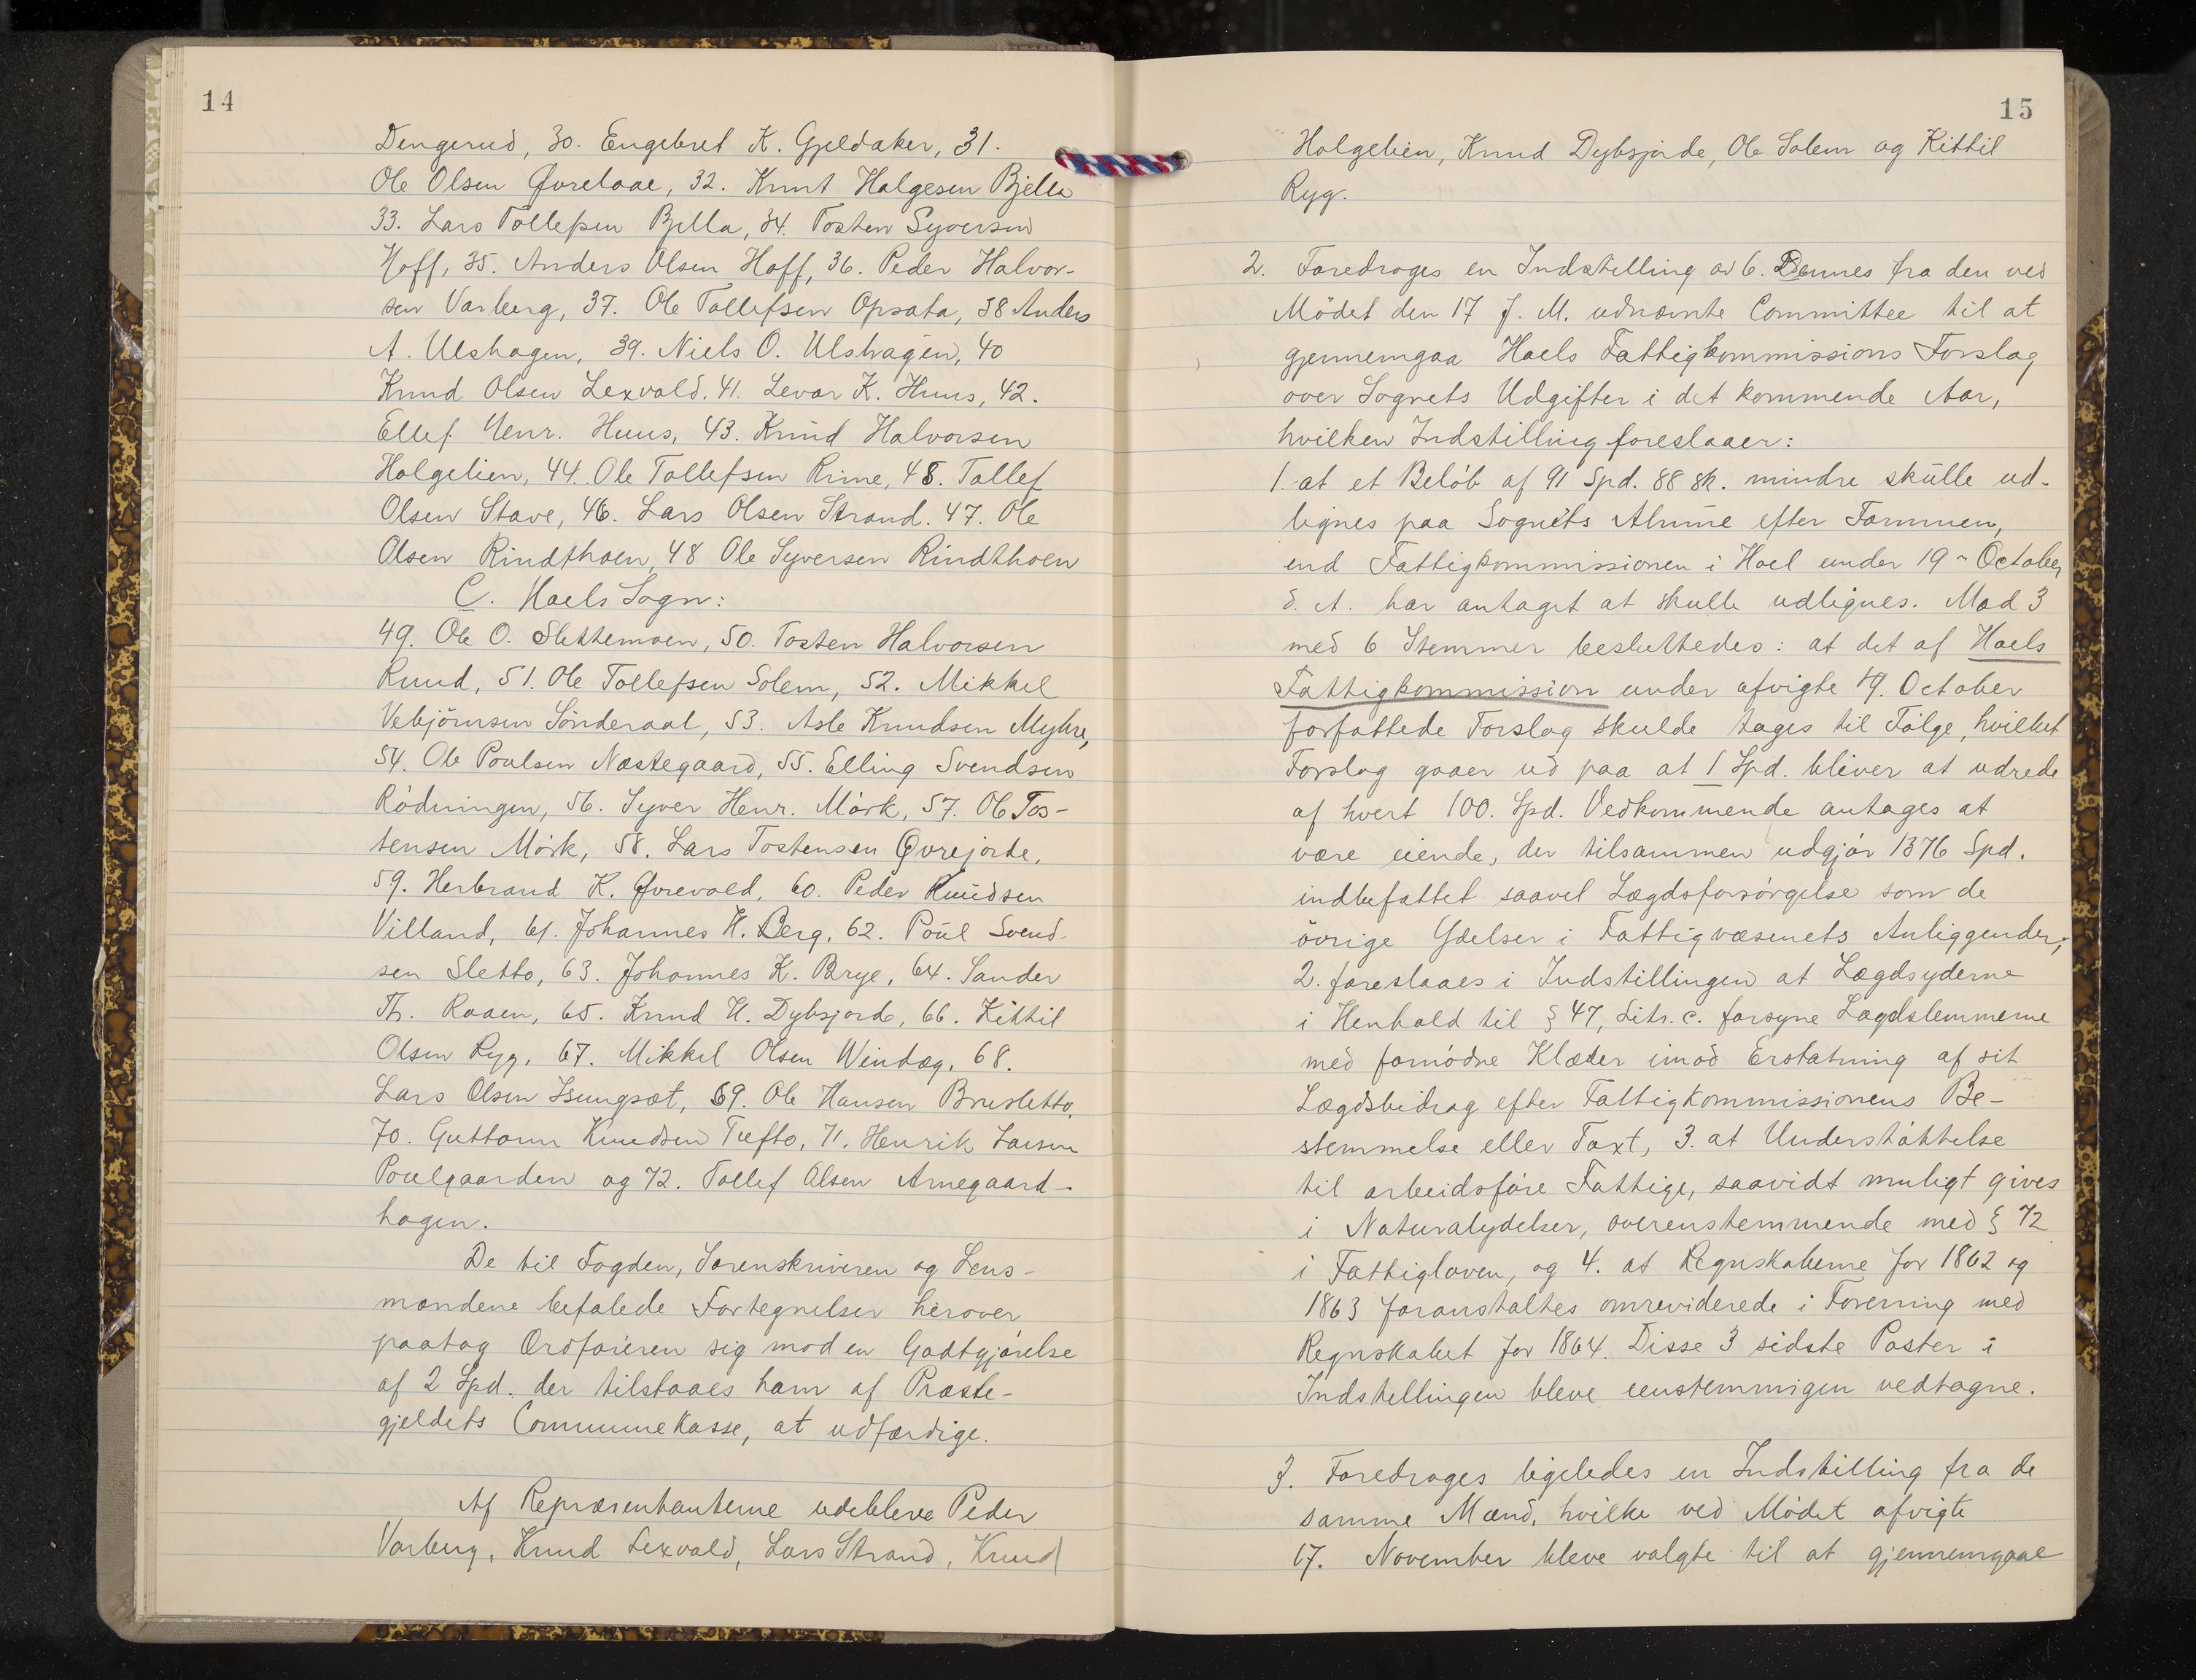 14
Dengerud, 30. Engebret K. Gjeldaker, 31.
Ole Olsen Øvrelaae, 32. Knut Halgesen Bjella
33. Lars Tollefsen Bjella, 34. Tosten Syversen
Hoff, 35. Anders Olsen Hoff, 36. Peder Halvor-
sen Varberg, 37. Ole Tollefsen Opsata, 38 Anders
A. Ulshagen, 39. Niels O. Ulshagen, 40
Knud Olsen Lexvold. 41. Levor K. Huus, 42.
Ellef Henr. Huus, 43. Knud Halvorsen
Holgelien, 44. Ole Tollefsen Rime, 45. Tollef
Olsen Stave, 46. Lars Olsen Strand. 47. Ole
Olsen Rindthoen, 48 Ole Syversen Rindthoen
C. Hoels Sogn:
49. Ole O. Slettemoen, 50. Tosten Halvorsen
Ruud, 51. Ole Tollefsen Solem, 52. Mikkel
Vebjörnsen Sönderaal, 53. Asle Knudsen Myhre,
54. Ole Poulsen Næstegaard, 55. Elling Svendsen
Rödningen, 56. Syver Henr. Mörk, 57. Ole Tos-
tensen Mörk, 58. Lars Tostensen Øvrejorde.
59. Herbrand K. Øvrevold, 60. Peder Knudsen
Villand, 61. Johannes H. Berg, 62. Poul Svend-
sen Sletto, 63. Johannes K. Brye, 64. Sander
Th. Raaen, 65. Knud H. Dybsjorde, 66. Kittil
Olsen Ryg, 67. Mikkel Olsen Windæg, 68.
Lars Olsen Isungset, 69. Ole Hansen Brusletto.
70. Guttorm Knudsen Tufto, 71. Henrik Larsen
Poulgaarden og 72. Tollef Olsen Arnegaard-
hagen.
De til Fogden, Sorenskriveren og Lens-
mændene befalede Fortegnelser herover
paatog Ordföreren sig mod en Godtgjörelse
af 2 Spd. der tilstaaes ham af Præste-
gjeldets Communekasse, at udfærdige.
Af Repræsentanterne udebleve Peder
Varberg, Knud Lexvold, Lars Strand, Knud
15
Holgelien, Knud Dybsjorde, Ole Solem og Kittil
Ryg.
2. Foredroges en Indstilling av 6. Dennes fra den ved
Mödet den 17 f. M. udnævnte Committee til at
gjennemgaa Hoels Fattigkommissions Forslag
over Sognets Udgifter i det kommende Aar,
hvilken Indstilling foreslaaer:
1. at et Belöb af 91 Spd. 88 sk. mindre skulle ud-
lignes paa Sognets Almue efter Formuen,
end Fattigkommissionen i Hoel under 19 October
d. A. har antaget at skulle udlignes. Mod 3
med 6 Stemmer besluttedes: at det af Hoels
Fattigkommission under afvigte 19. October
forfattede Forslag skulde tages til Fölge, hvilket
Forslag gaaer ud paa at 1 Spd. bliver at udrede
af hvert 100. Spd. Vedkommende antages at
være eiende, der tilsammen udgjör 1376 Spd.
indbefattet saavel Lægdsforsörgelse som de
övrige Ydelser i Fattigvæsenets Anliggender,
2. foreslaaes i Indstillingen at Lægdsyderne
i Henhold til § 47, Litr. c. forsyne Lægdslemmerne
med fornödne Klæder imod Erstatning af sit
Lægdsbidrag efter Fattigkommissionens Be-
stemmelse eller Taxt, 3. at Understöttelse
til arbeidsföre Fattige, saavidt muligt gives
i Naturalydelser, overenstemmende med § 72
i Fattigloven, og 4. at Regnskaberne for 1862 og
1863 foranstaltes omreviderede i Forening med
Regnskabet for 1864. Disse 3 sidste Poster i
Indstillingen bleve eenstemmigen vedtagne.
3. Foredroges ligeledes en Indstilling fra de
samme Mænd, hvilke ved Mödet afvigte
17. November bleve valgte til at gjennemgaae